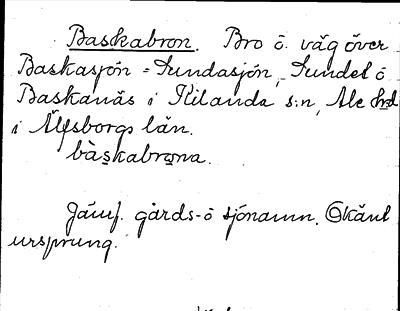 Baskabron. Bro ö. väg över
Baskasjön = Sundasjön, Sundet ö
Baskanäs i Kilanda s:n, Ale hd
i Älfsborgs län.
bàskabrωna.
Jämf. gårds- o sjönamn. Okänt
ursprung.